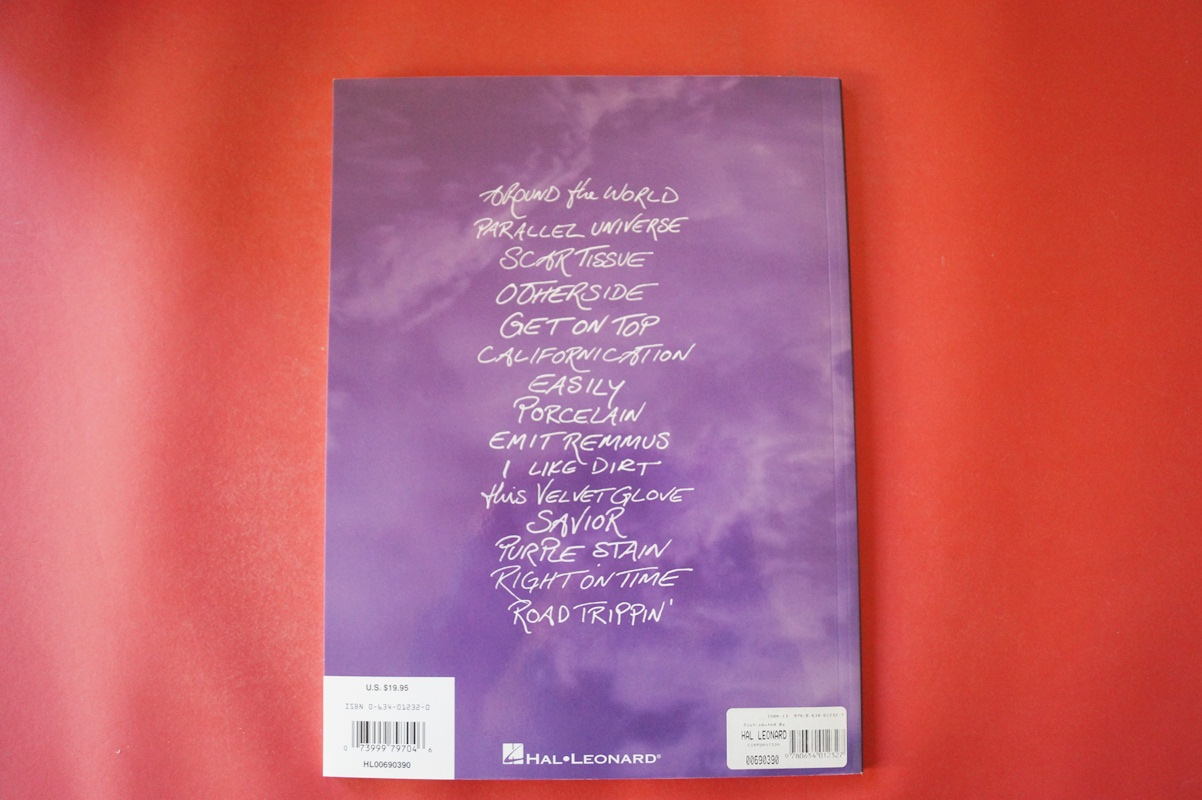 AROUND the WORLD
PARALLEL UNIVERSE
SCAR TISSUE
OTHERSIDE
GET ON TOP
CALIFORNICATION
EASILY
PORCELAIN
EMIT REMMUS
I LIKE DIRT
this VELVET GLOVE
SAVIOR
PURPLE STAIN
RIGHT ON TIME
ROAD TRIPPIN'
U.S. $19.95
ISBN 0-634-01232-0
0 73999 79704 6
HL00690390
HAL•LEONARD®
Distributed By
HAL LEONARD
CORPORATION
00690390